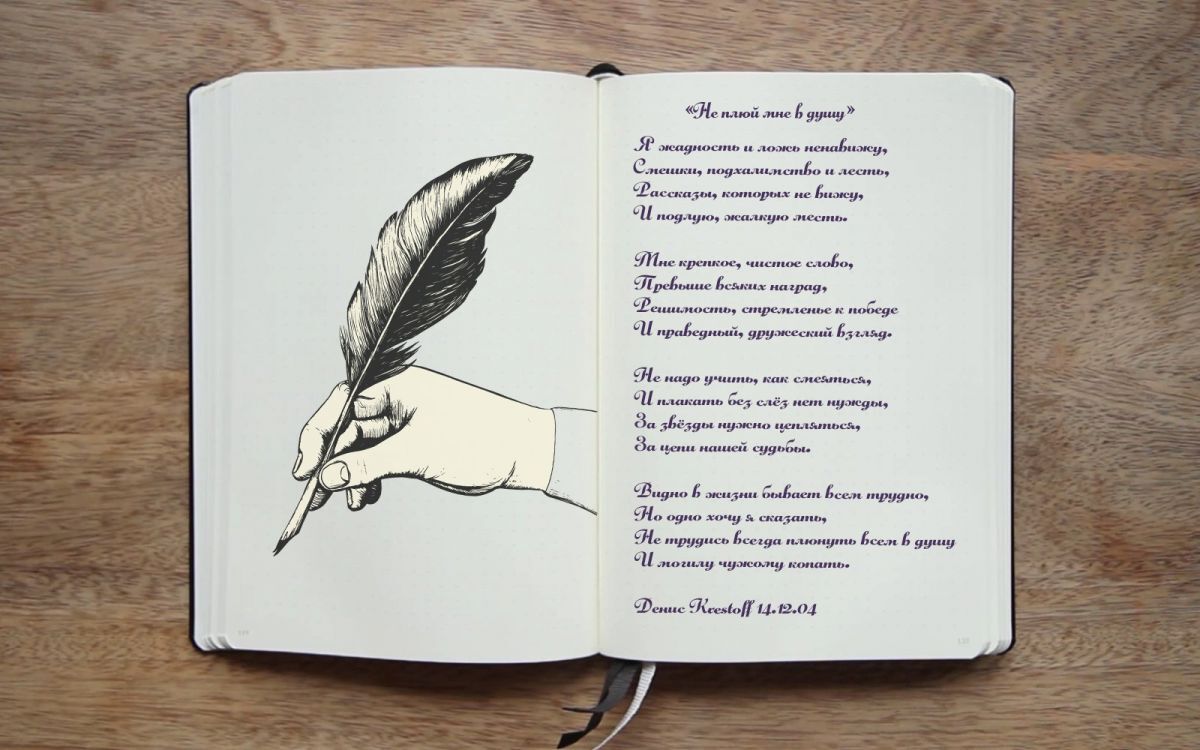 «Не плюй мне в душу»
Я жадность и ложь ненавижу,
Смешки, подхалимство и лесть,
Рассказы, которых не вижу,
И подлую, жалкую месть.
Мне крепкое, чистое слово,
Превыше всяких наград,
Решимость, стремленье к победе
И праведный, дружеский взгляд.
Не надо учить, как смеяться,
И плакать без слёз нет нужды,
За звёзды нужно цепляться,
За цепи нашей судьбы.
Видно в жизни бывает всем трудно,
Но одно хочу я сказать,
Не трудись всегда плюнуть всем в душу
И могилу чужому копать.
Денис Krestoff 14.12.04